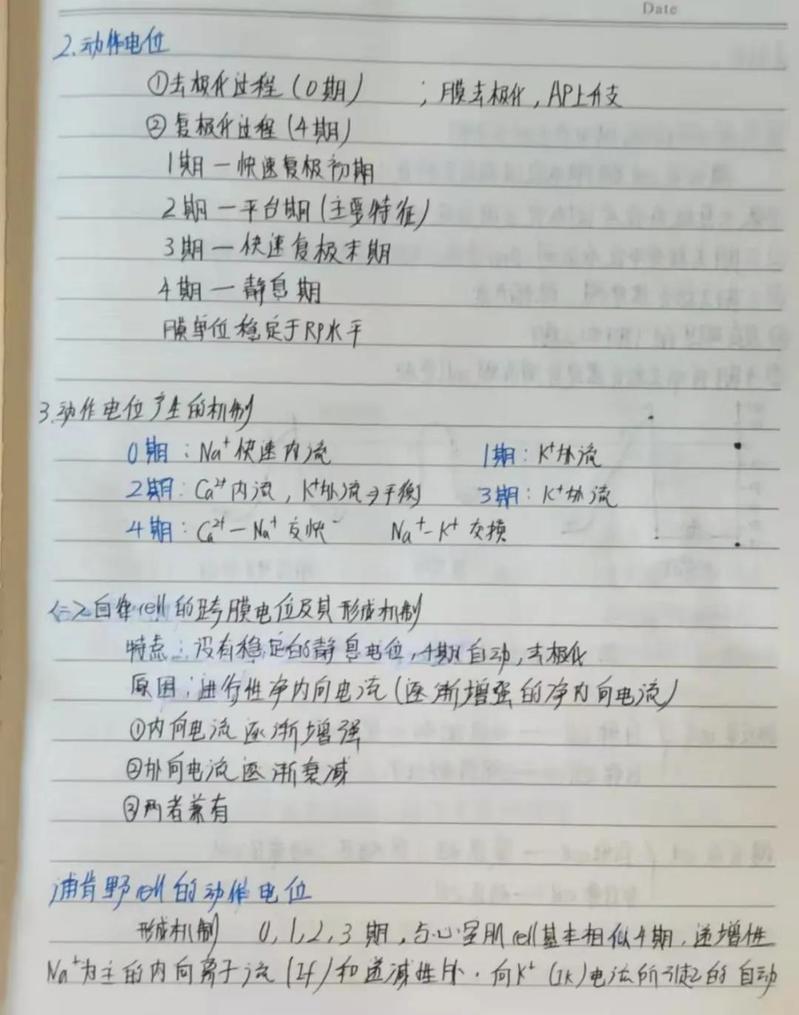 Date
2.动作电位
①去极化过程(0期) ;膜去极化,AP上升支
②复极化过程(4期)
1期—快速复极初期
2期—平台期(主要特征)
3期—快速复极末期
4期—静息期
膜单位稳定于RP水平
3.动作电位产生的机制
0期:Na⁺快速内流 1期:K⁺外流
2期:Ca²⁺内流,K⁺外流→平衡 3期:K⁺外流
4期:Ca²⁺—Na⁺交快 Na⁺-K⁺交换
<二>自律cell的跨膜电位及其形成机制
特点:没有稳定的静息电位,4期自动,去极化
原因:进行性净内向电流(逐渐增强的净内向电流)
①内向电流逐渐增强
②外向电流逐渐衰减
③两者兼有
浦肯野cell的动作电位
形成机制 0,1,2,3期,与心室肌cell基本相似4期,递增性
Na⁺为主的内向离子流(If)和递减性外,向K⁺(Ik)电流所引起的自动